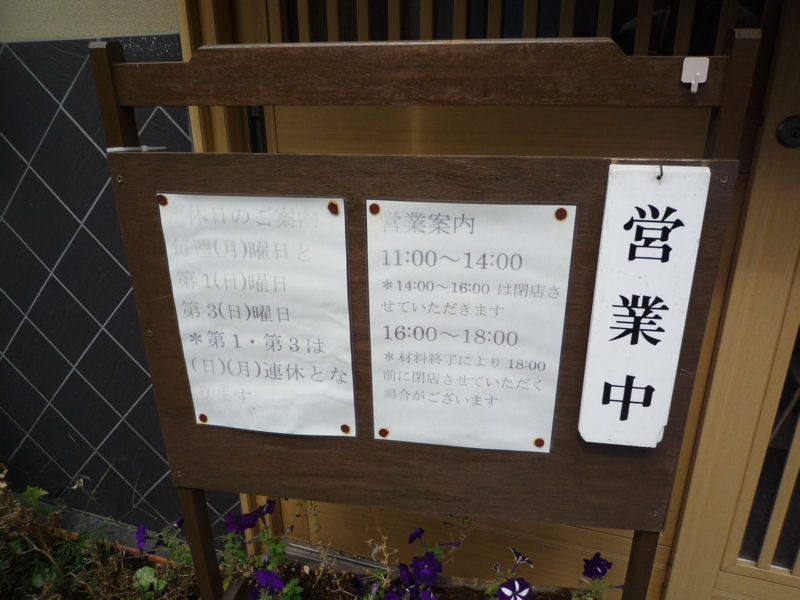 休日のご案内
毎週(月)曜日と
第1(日)曜日
第3(日)曜日
＊第1・第3は
(日)(月)連休とな
ります
営業案内
11:00～14:00
＊14:00～16:00 は閉店さ
せていただきます
16:00～18:00
＊材料終了により 18:00
前に閉店させていただく
場合がございます
営業中